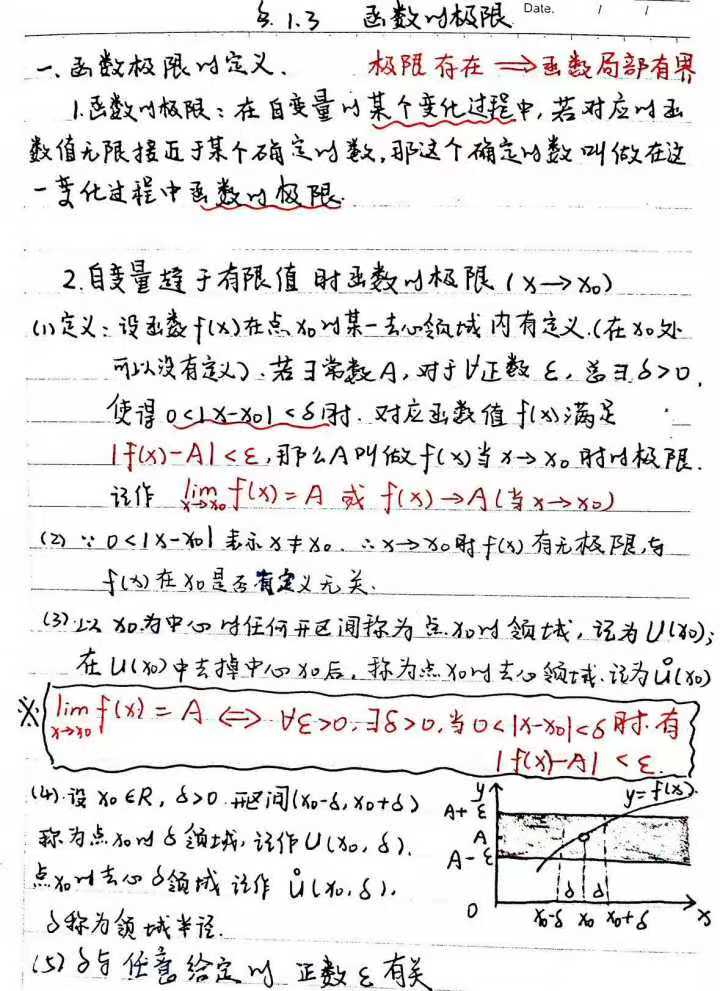 §.1.3 函数的极限 Date. / /
一、函数极限的定义. 极限存在 ⟹ 函数局部有界
1.函数的极限:在自变量的某个变化过程中,若对应的函
数值无限接近于某个确定的数,那这个确定的数叫做在这
一变化过程中函数的极限.
2.自变量趋于有限值时函数的极限(x→x₀)
(1)定义:设函数f(x)在点x₀的某一去心领域内有定义.(在x₀处
可以没有定义).若∃常数A,对于∀正数ε,总∃δ>0,
使得0<|x-x₀|<δ时.对应函数值f(x)满足
|f(x)-A|<ε,那么A叫做f(x)当x→x₀时的极限.
记作 lim f(x)=A 或 f(x)→A(当x→x₀)
x→x₀
(2) ∵ 0<|x-x₀|表示x≠x₀.∴x→x₀时f(x)有无极限,与
f(x)在x₀是否有定义无关.
(3).以x₀为中心的任何开区间称为点x₀的领域,记为U(x₀);
在U(x₀)中去掉中心x₀后,称为点x₀的去心领域.记为Ů(x₀)
※ lim f(x)=A ⟺ ∀ε>0,∃δ>0,当0<|x-x₀|<δ时.有
x→x₀
|f(x)-A|<ε.
(4).设x₀∈R,δ>0.开区间(x₀-δ,x₀+δ)
称为点x₀的δ领域,记作U(x₀,δ).
点x₀的去心δ领域记作Ů(x₀,δ).
δ称为领域半径.
y
y=f(x).
A+ε
A
A-ε
δ δ
0 x₀-δ x₀ x₀+δ x
(5) δ与任意给定的正数ε有关